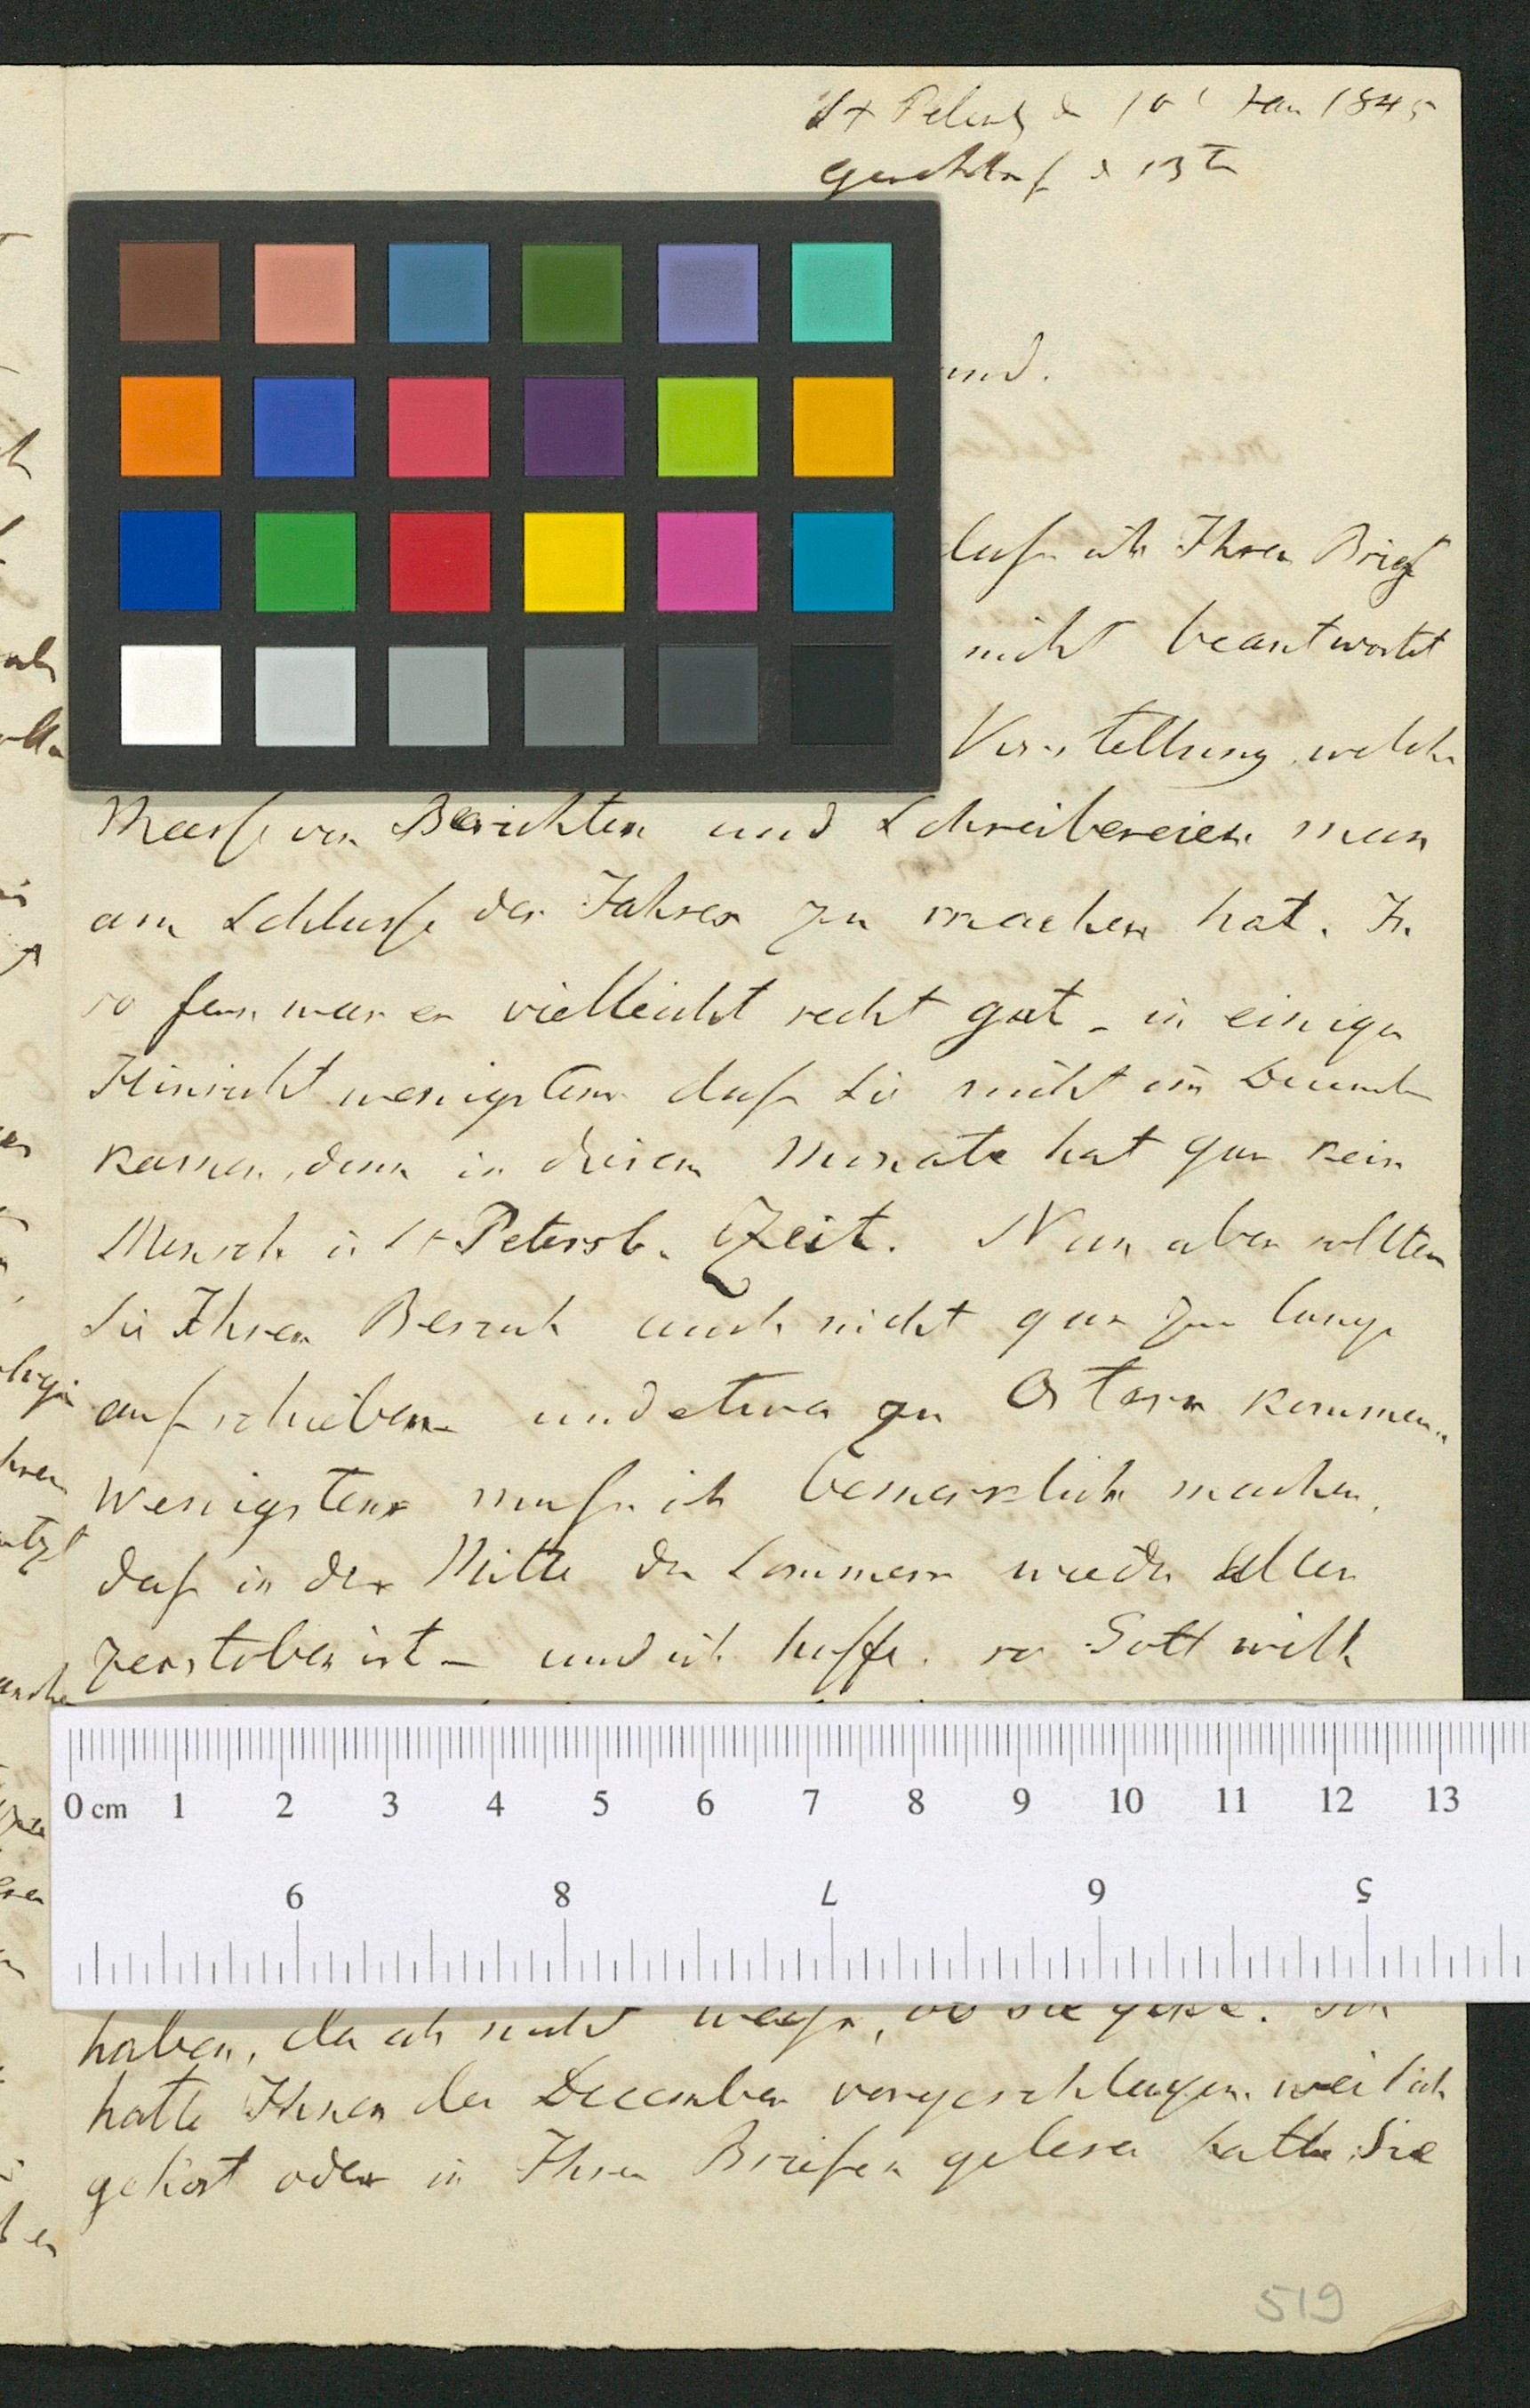 St Petersb d 10t Jan 1845
d 13ten
und.
dass ich Ihren Brief
nicht beantwortet
Vorstellung welche
Masse von Berichten und Schreibereien man
am Schlusse des Jahres zu machen hat. In
so fern war es vielleicht recht gut – in einiger
Hinsicht wenigstens dass Sie nicht im Decemb
kamen, denn in diesem Monate hat gar kein
Mensch in St Petersb. Zeit. Nun aber sollten
Sie Ihren Besuch auch nicht gar zu lange
aufschieben und etwa zu Ostern kommen.
Wenigstens muss ich bemerklich machen,
dass in der Mitte des Sommers wieder alles
zerstoben ist – und ich hoffe, so Gott will
0 cm 1 2 3 4 5 6 7 8 9 10 11 12 13
9 8 7 6 5
haben, da ich nicht weiss, ob sie
hatte Ihnen den December vorgeschlagen weil ich
gehört oder in Ihren Briefen gelesen hatte Sie
519